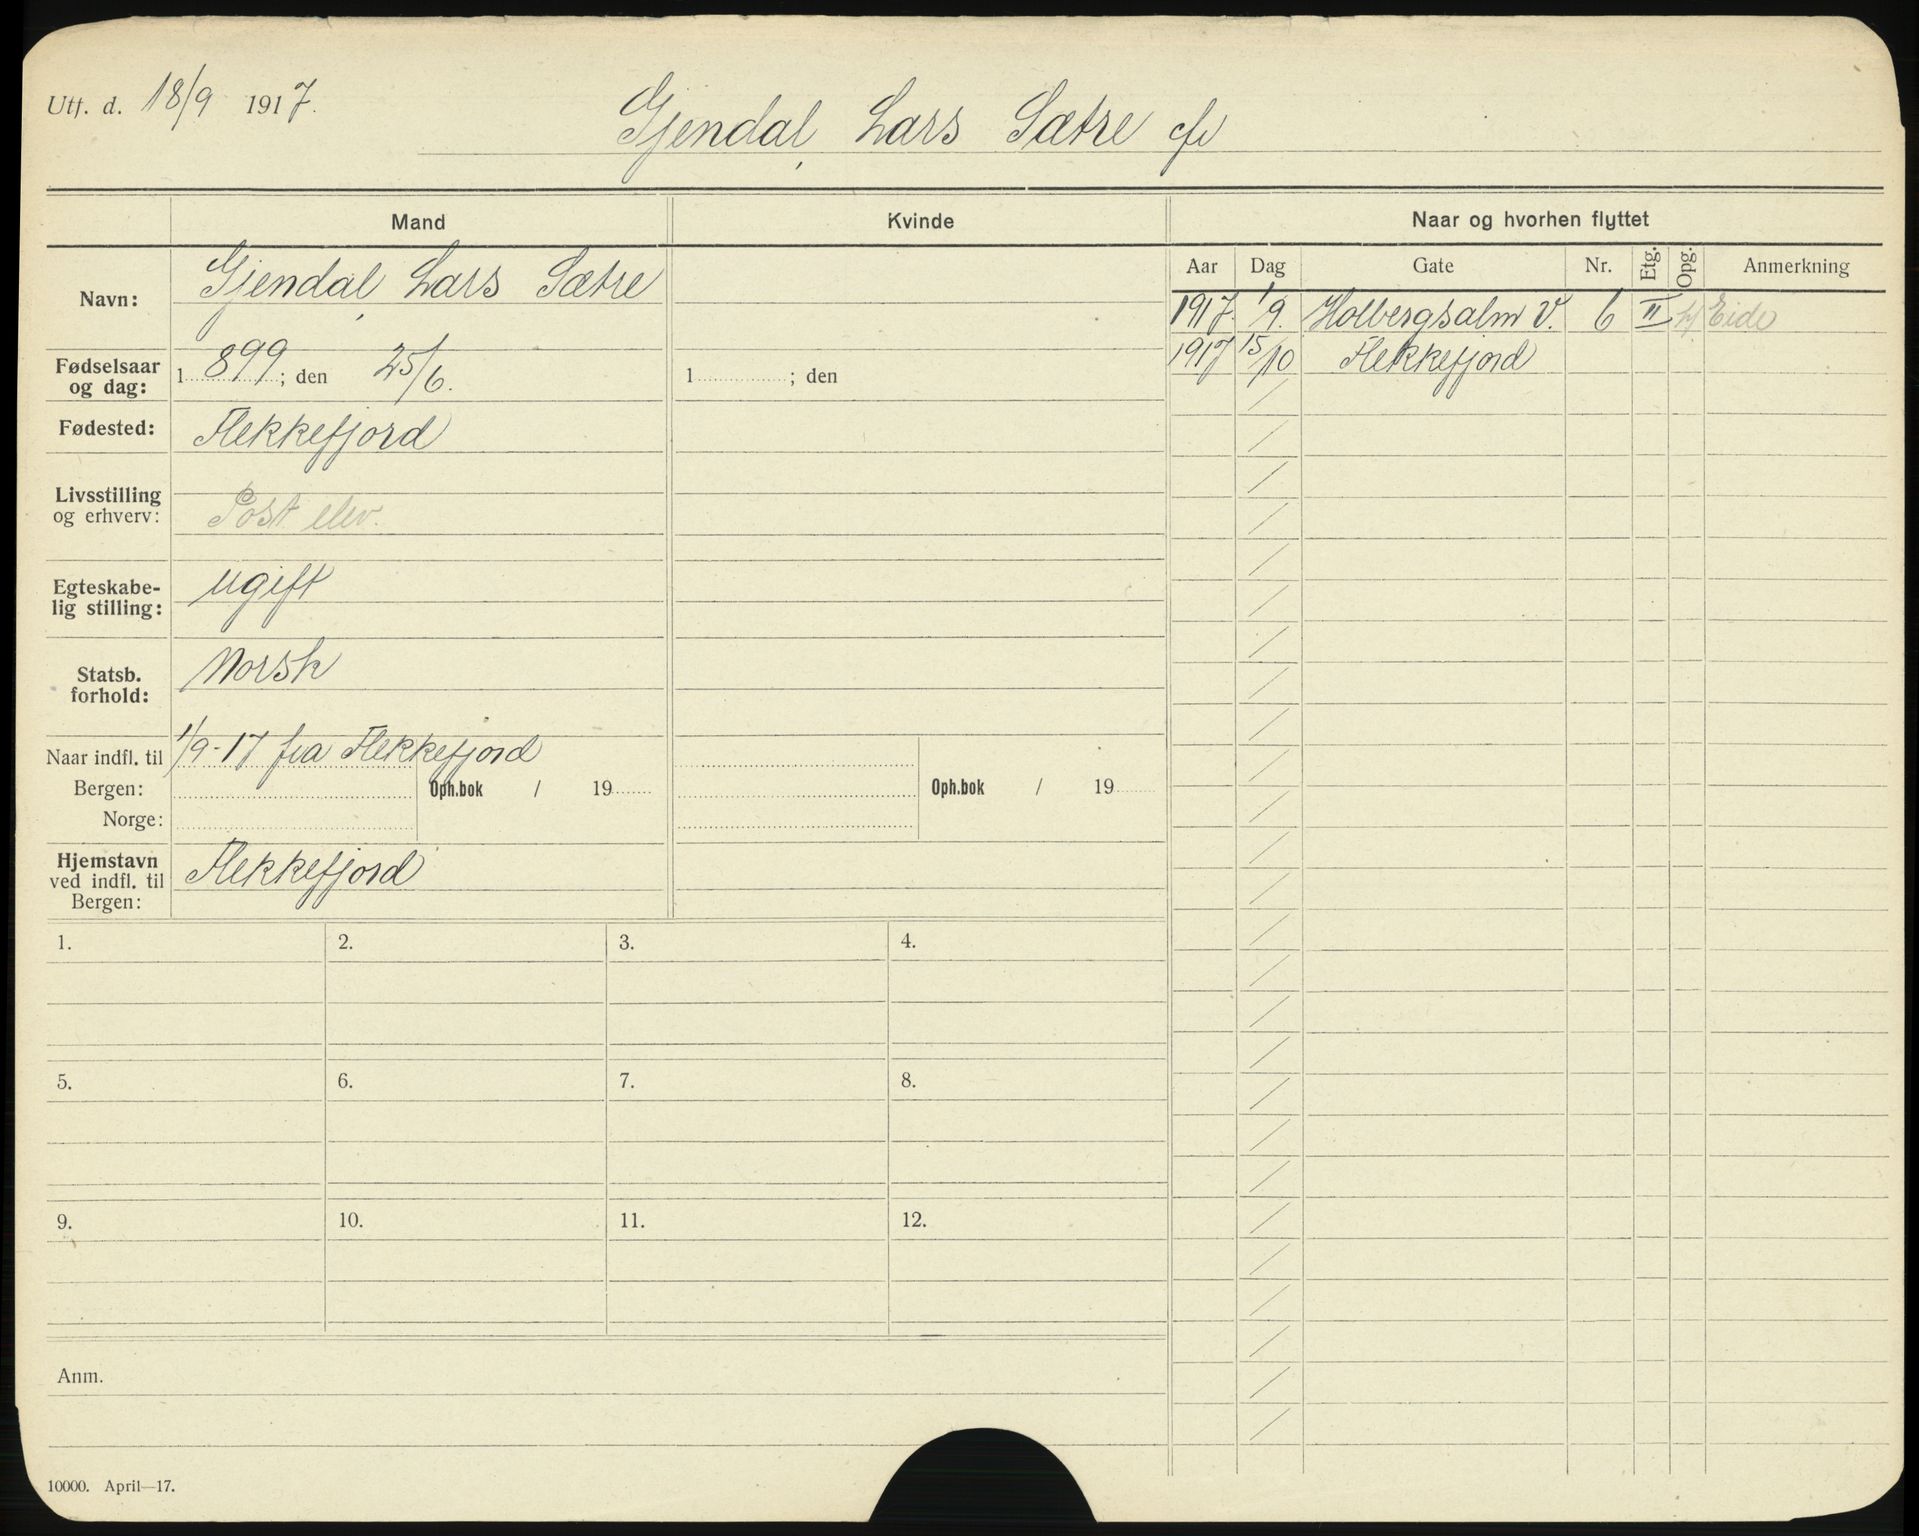 Utf. d. 18/9 1917.
Gjendal, Lars Sætre
Mand Kvinde Naar og hvorhen flyttet
Aar Dag Gate Nr. Etg. Opg. Anmerkning
Navn: Gjendal, Lars Sætre
1917. 1/9. Holbergsalm V. 6 II Eide
1917 15/10 Flekkefjord
Fødselsaar og dag: 1899; den 25/6. 1 ; den
Fødested: Flekkefjord
Livsstilling og erhverv: Post elev.
Egteskabe-
lig stilling: ugift
Statsb. forhold: Norsk
Naar indfl. til 1/9-17 fra Flekkefjord
Bergen: Oph.bok / 19 Oph.bok / 19
Norge:
Hjemstavn ved indfl. til Bergen: Flekkefjord
1. 2. 3. 4.
5. 6. 7. 8.
9. 10. 11. 12.
Anm.
10000. April—17.